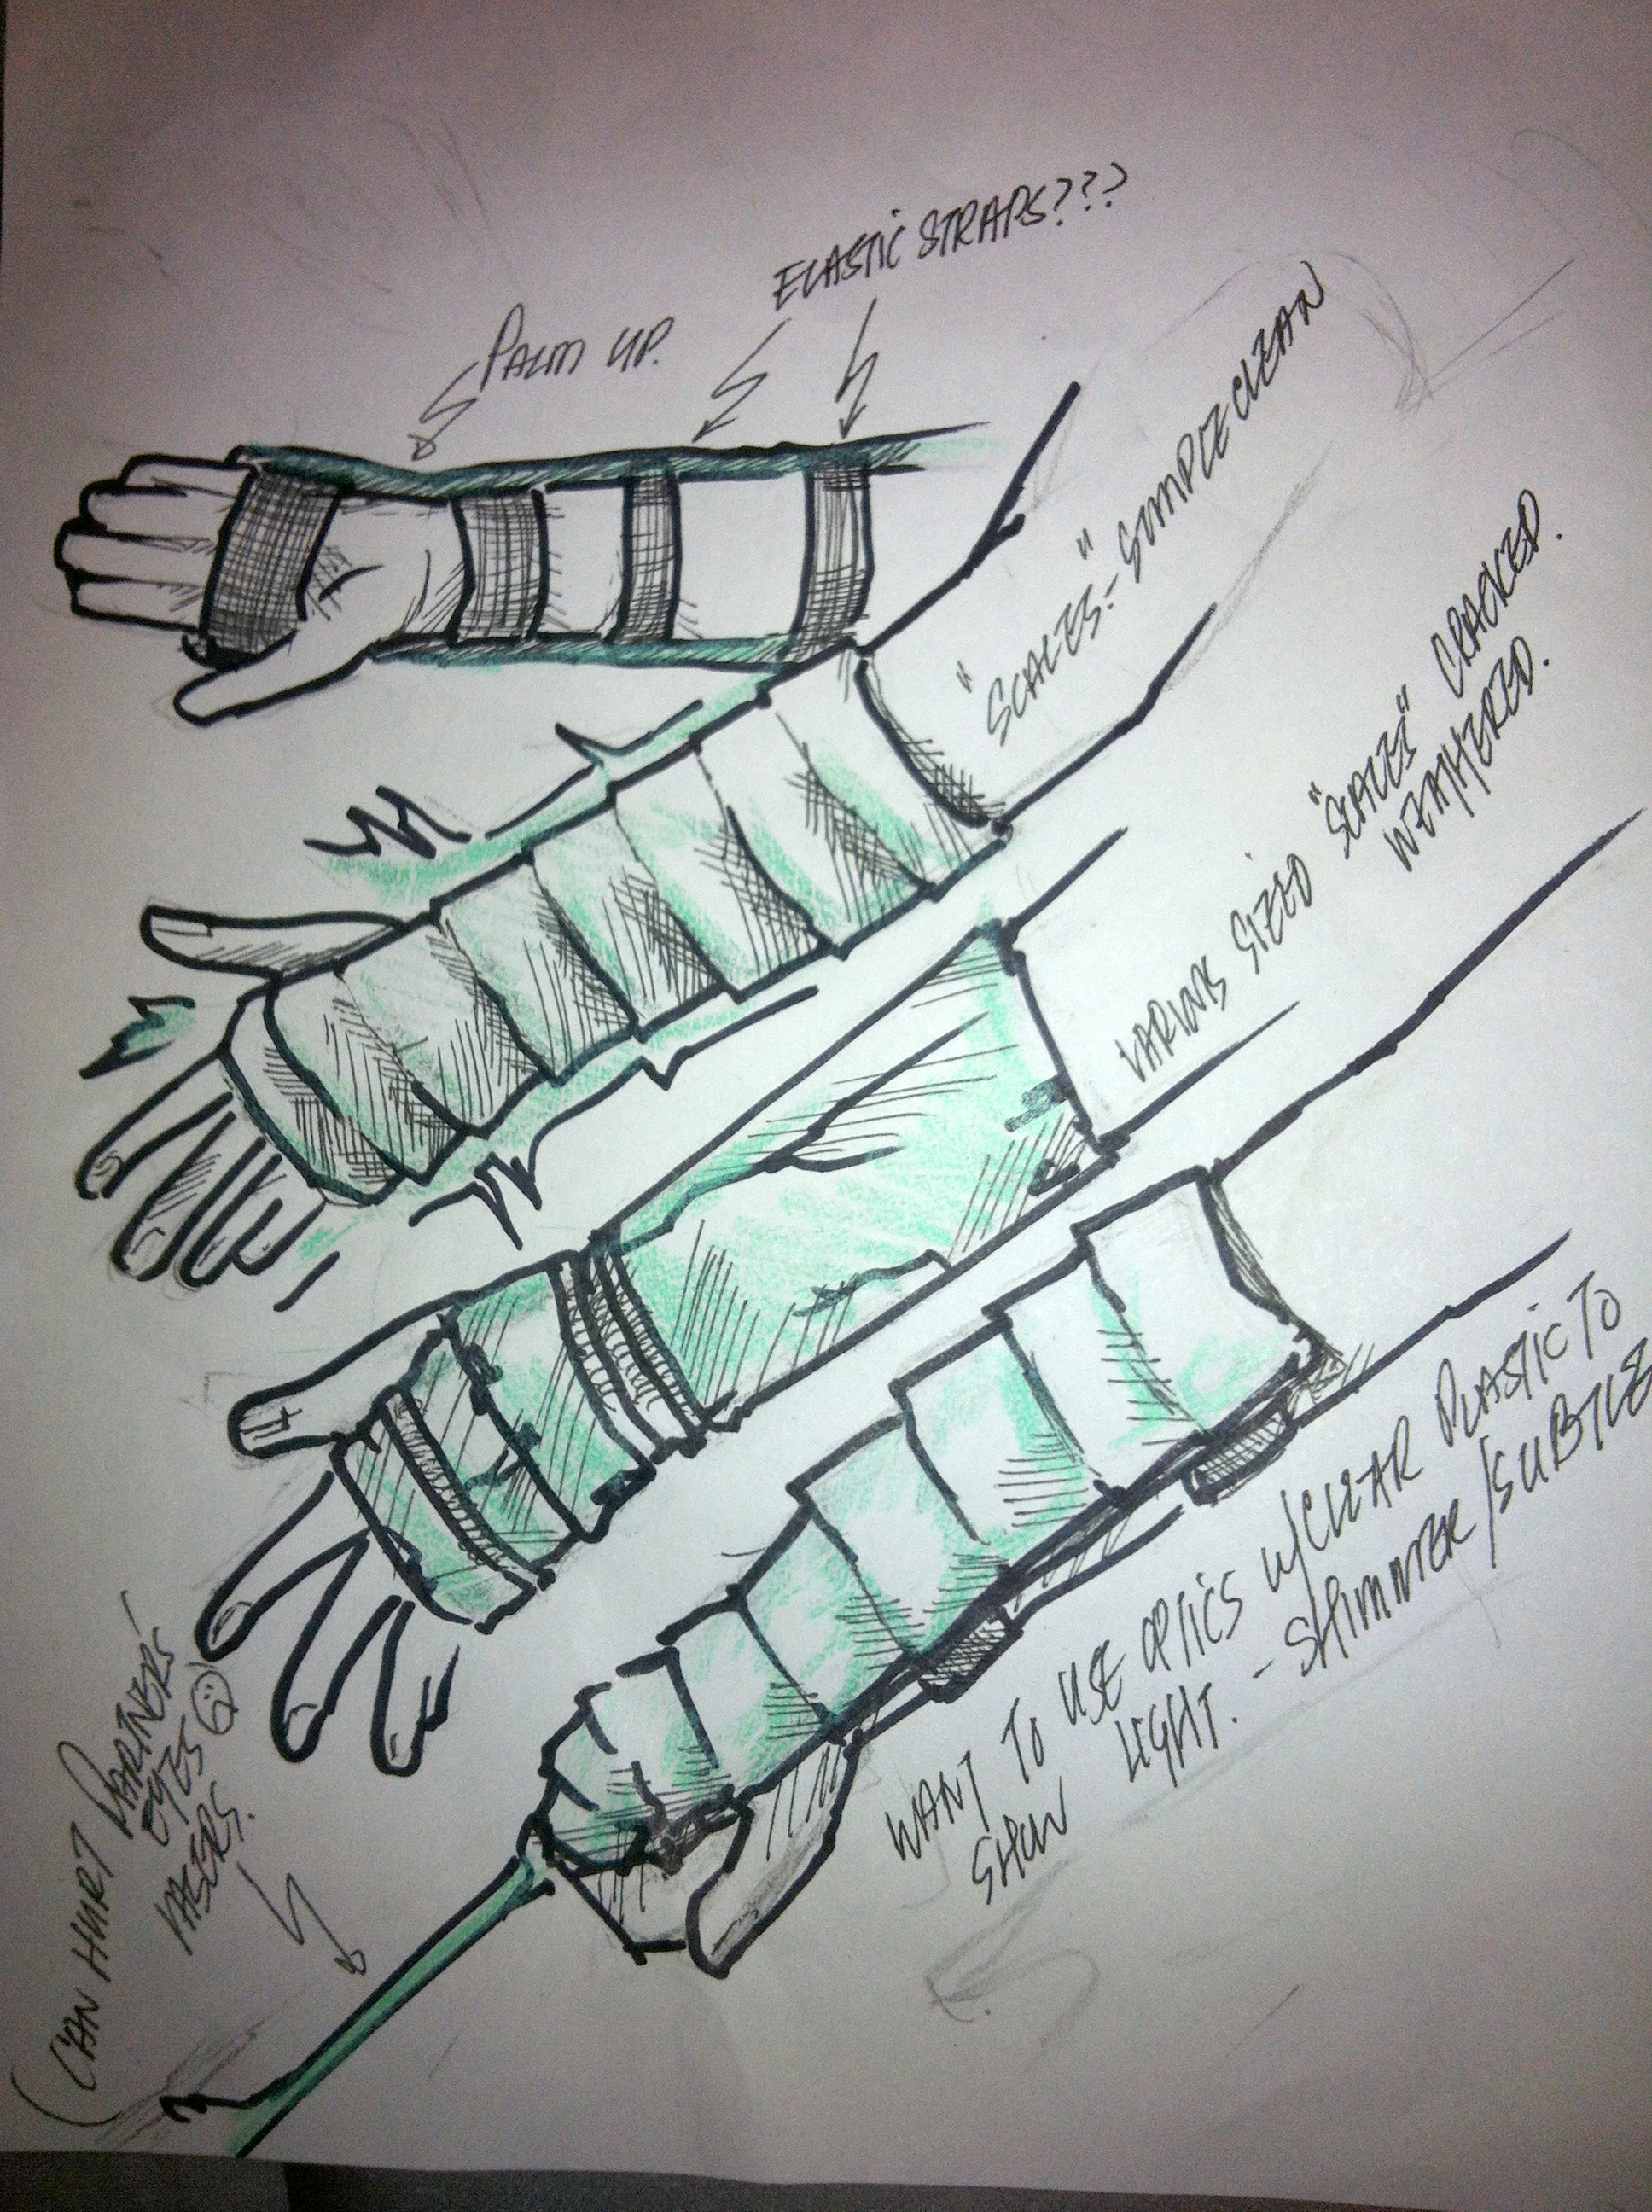 PALM UP.
ELASTIC STRAPS???
"SCALES" - SIMPLE CLEAN
VARING SIZED "SCALES" CRACKED.
WEATHERED.
WANT TO USE OPTICS W/CLEAR PLASTIC TO
SHOW LIGHT. - SHIMMER/SUBTLE
(CAN HURT PARTNERS'
EYES
LASERS.